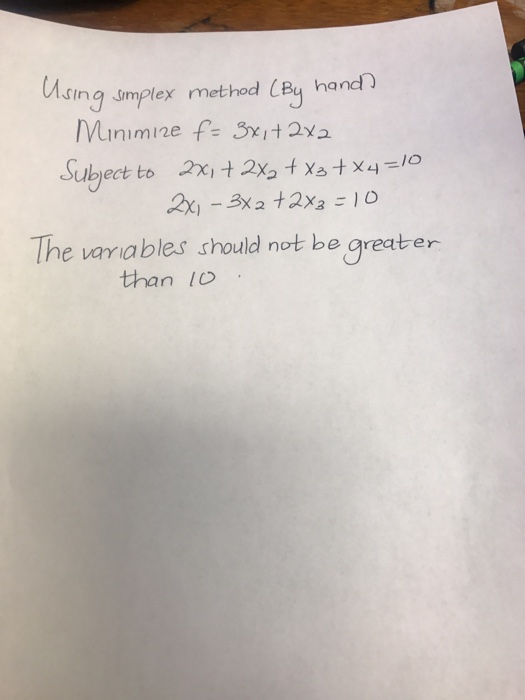 Using simplex method (By hand)
Minimize f= 3x₁+2x₂
Subject to 2x₁ + 2x₂ + x₃ + x₄ = 10
2x₁ - 3x₂ + 2x₃ = 10
The variables should not be greater
than 10 .